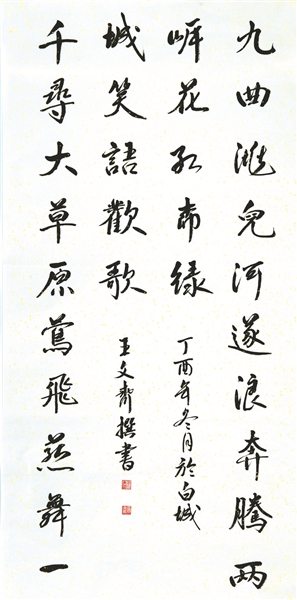 九曲洮兒河遂浪奔騰兩
岸花紅緑
千尋大草原鶯飛燕舞一
城笑語歡歌
丁酉年冬月於白城
王文齋撰書